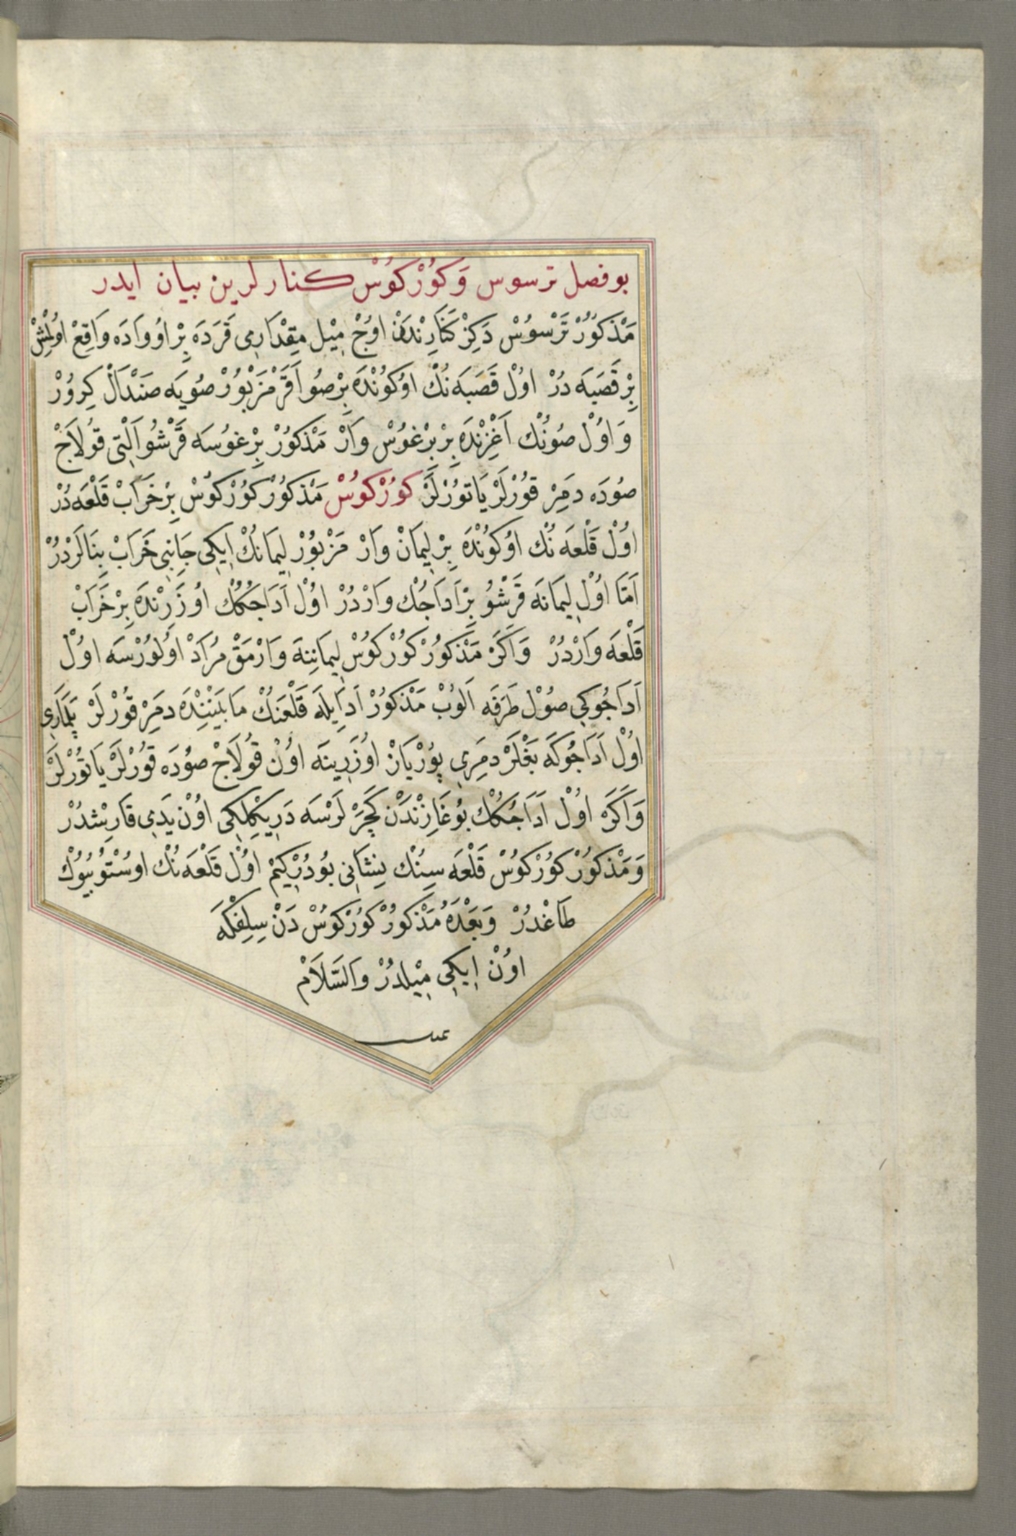 بو فصل ترسوس وَ كوُرْكوُسْ كنارلرين بيان ايدر
مَذْكوُرْ تَرْسوُسْ دَكِزْ كَنَارِنْدَنْ اوُچْ مِيْل مِقْدَارِى قَرَدَه بِرْ اوُوَادَه وَاقِعْ اوُلْمِشْ
بِرْ قَصَبَه دُرْ اوُلْ قَصَبَه نُكْ اوُكوُنْدَه بِرْ صُو اَقَرْ مَزْبوُرْ صُويَه صَنْدَالْ كِرُورْ
وَ اوُلْ صوُنُكْ اَغْزِنْدَه بِرْ بُرْغوُسْ وَارْ مَذْكوُرْ بِرْغوُسَه قَرْشُو اَلْتِى قوُلاَجْ
صوُدَه دمِرْ قوُرْلَرْ يَاتوُرْلَرْ كوُرْكوُسْ مَذْكوُرْ كوُرْكوُسْ بِرْ خَرَابْ قَلْعَه دُرْ
اوُلْ قَلْعَه نُكْ اوُكوُنْدَه بِرْ لِيمَانْ وَارْ مَزْبوُرْ لِيمَانُكْ اِيكِى جَانِبِى خَرَابْ بِنَالَرْدُرْ
اَمَّا اوُلْ لِيمَانَه قَرْشُو بِرْ اَدَاجُكْ وَارْدُرْ اوُلْ اَدَاجُكُكْ اوُزَرِنْدَه بِرْ خَرَابْ
قَلْعَه وَارْدُرْ وَاَكَرْ مَذْكوُرْ كوُرْكوُسْ لِيمَانِنَه وَارْمَقْ مُرَادْ اوُلوُرْسَه اوُلْ
اَدَاجُوكِى صوُلْ طَرَفَه اَلوُبْ مَذْكوُرْ اَدَايِلَه قَلْعَنُكْ مَابَيْنِنْدَه دمِرْ قوُرْلَرْ
اوُلْ اَدَاجُوكَه بَغْلَرْ دمِرِى پوُرْيَانْ اوُزَرِينَه اوُنْ قوُلاَجْ صوُدَه قوُرْلَرْ يَاتوُرْلَرْ
وَاَكَرْ اوُلْ اَدَاجُكُكْ بوُغَازِنْدَنْ كَچَرْلَرْسَه دَرِيكْلِكِى اوُنْ يَدِى قَارِشْدُرْ
وَمَذْكوُرْ كوُرْكوُسْ قَلْعَه سِنُكْ نِشَانِى بوُدُرْكِيمْ اوُلْ قَلْعَه نُكْ اوُسْتوُ بيُوكْ
طَاغْدُرْ وَبَعْدَهُ مَذْكوُرْ كوُرْكوُسْ دَنْ سِلِفْكَه
اوُنْ اِيكِى مِيْلدُرْ وَالسَّلاَمْ
تمت